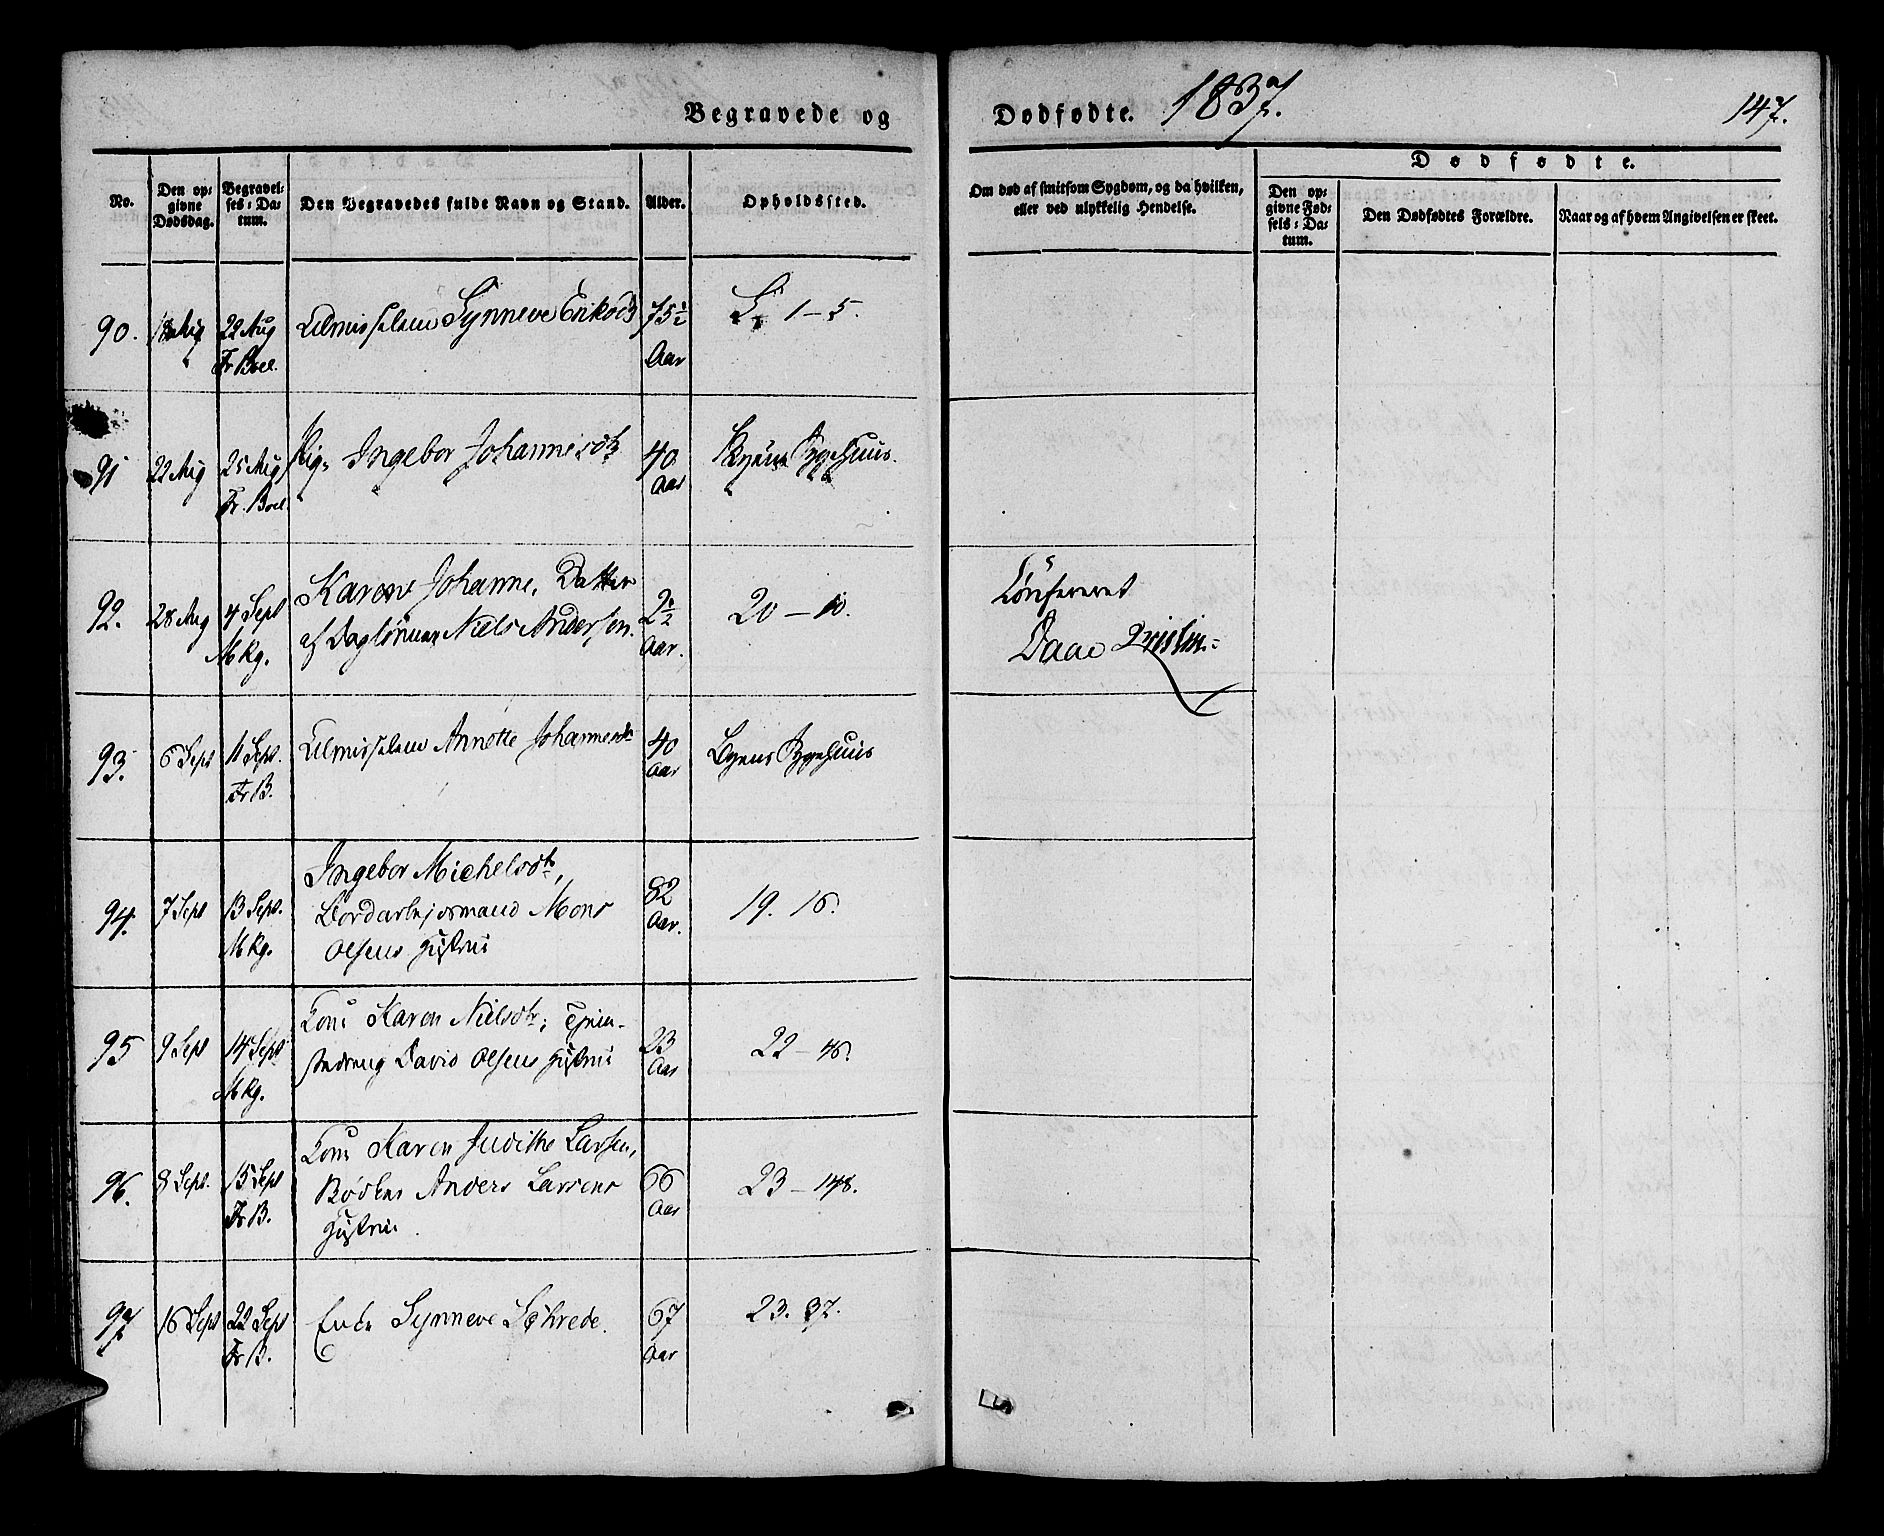 Begravede og Dødfødte. 1837. 147.
No.
Den opgivne Dødsdag.
Begravelses-Datum.
Den Begravedes fulde Navn og Stand.
Alder.
Opholdssted.
Om død af smitsom Sygdom, og da hvilken, eller ved ulykkelig Hendelse.
Dødfødte.
Den opgivne Fødsels-Datum.
Den Dødfødtes Forældre.
Naar og af hvem Angivelsen er skeet.
90. 18 Aug 22 Aug Almisselem Synneve Eriksdtr 75½ 1–5.
Fr Boel. Aar
91 22 Aug 25 Aug Pig. Ingebor Johannesdtr 40 Byens Sygehuus.
Fr. Boel. Aar
92. 28 Aug 4 Sept Karen Johanne, Datter 2½ 20–10. Confereret
Mkg. af Daglønner Niels Andersen. Aar. Daae
93. 6 Sept 11 Sept. Almisselem Annette Johannesdr 40 Byens Sygehuus
Fr B. Aar
94. 7 Sept 13 Sept. Ingebor Michelsdtr, 82 19. 16.
Mkg. Bordarbejdsmand Mons Aar.
Olsens Hustrue
95 9 Sept 14 Sept. Konе Karen Nielsdtr, 23 22–46.
Mkg. David Olsens Hustrue Aar
96. 8 Sept. 15 Sept Kone Karen Judithe Larsen, 66 23–148.
Fr B. Bødker Anders Larsens Aar
Hustrue
97 16 Sept 22 Sept Enke Synneve Schrede. 67 23. 37.
Fr B. Aar